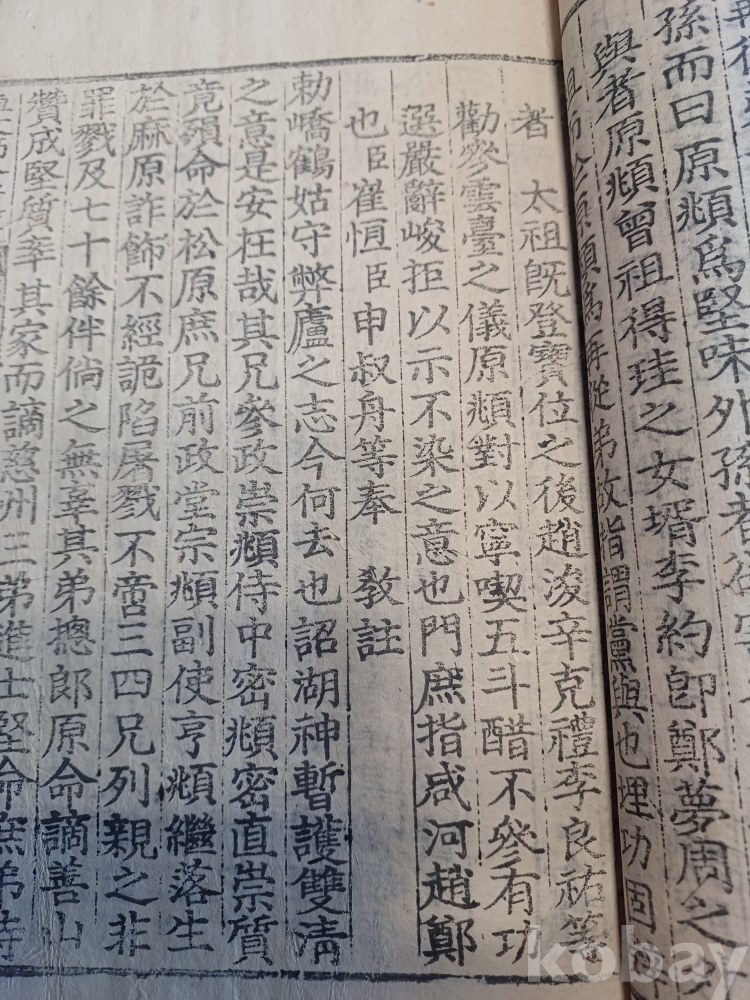 孫而曰原頫爲堅味外孫者
與者原頫曾祖得珪之女壻李約卽鄭夢周之外
原頫爲再從弟故指謂黨與也埋功固
者 太祖旣登寶位之後趙浚辛克禮李良祐等
勸參雲臺之儀原頫對以寧喫五斗醋不參有功
選嚴辭峻拒以示不染之意也門庶指咸河趙鄭
也臣崔恒臣申叔舟等奉 敎註
勑嶠鶴姑守弊廬之志今何去也詔湖神暫護雙淸
之意是安枉哉其兄參政崇頫侍中密頫密直崇質
竟殞命於松原庶兄前政堂宗頫副使亨頫繼落生
於麻原詐飾不經詭陷屠戮不啻三四兄列親之非
罪戮及七十餘伴倘之無辜其弟摠郎原命謫善山
贊成堅質率其家而謫慈州三弟進士堅命庶弟
kobay